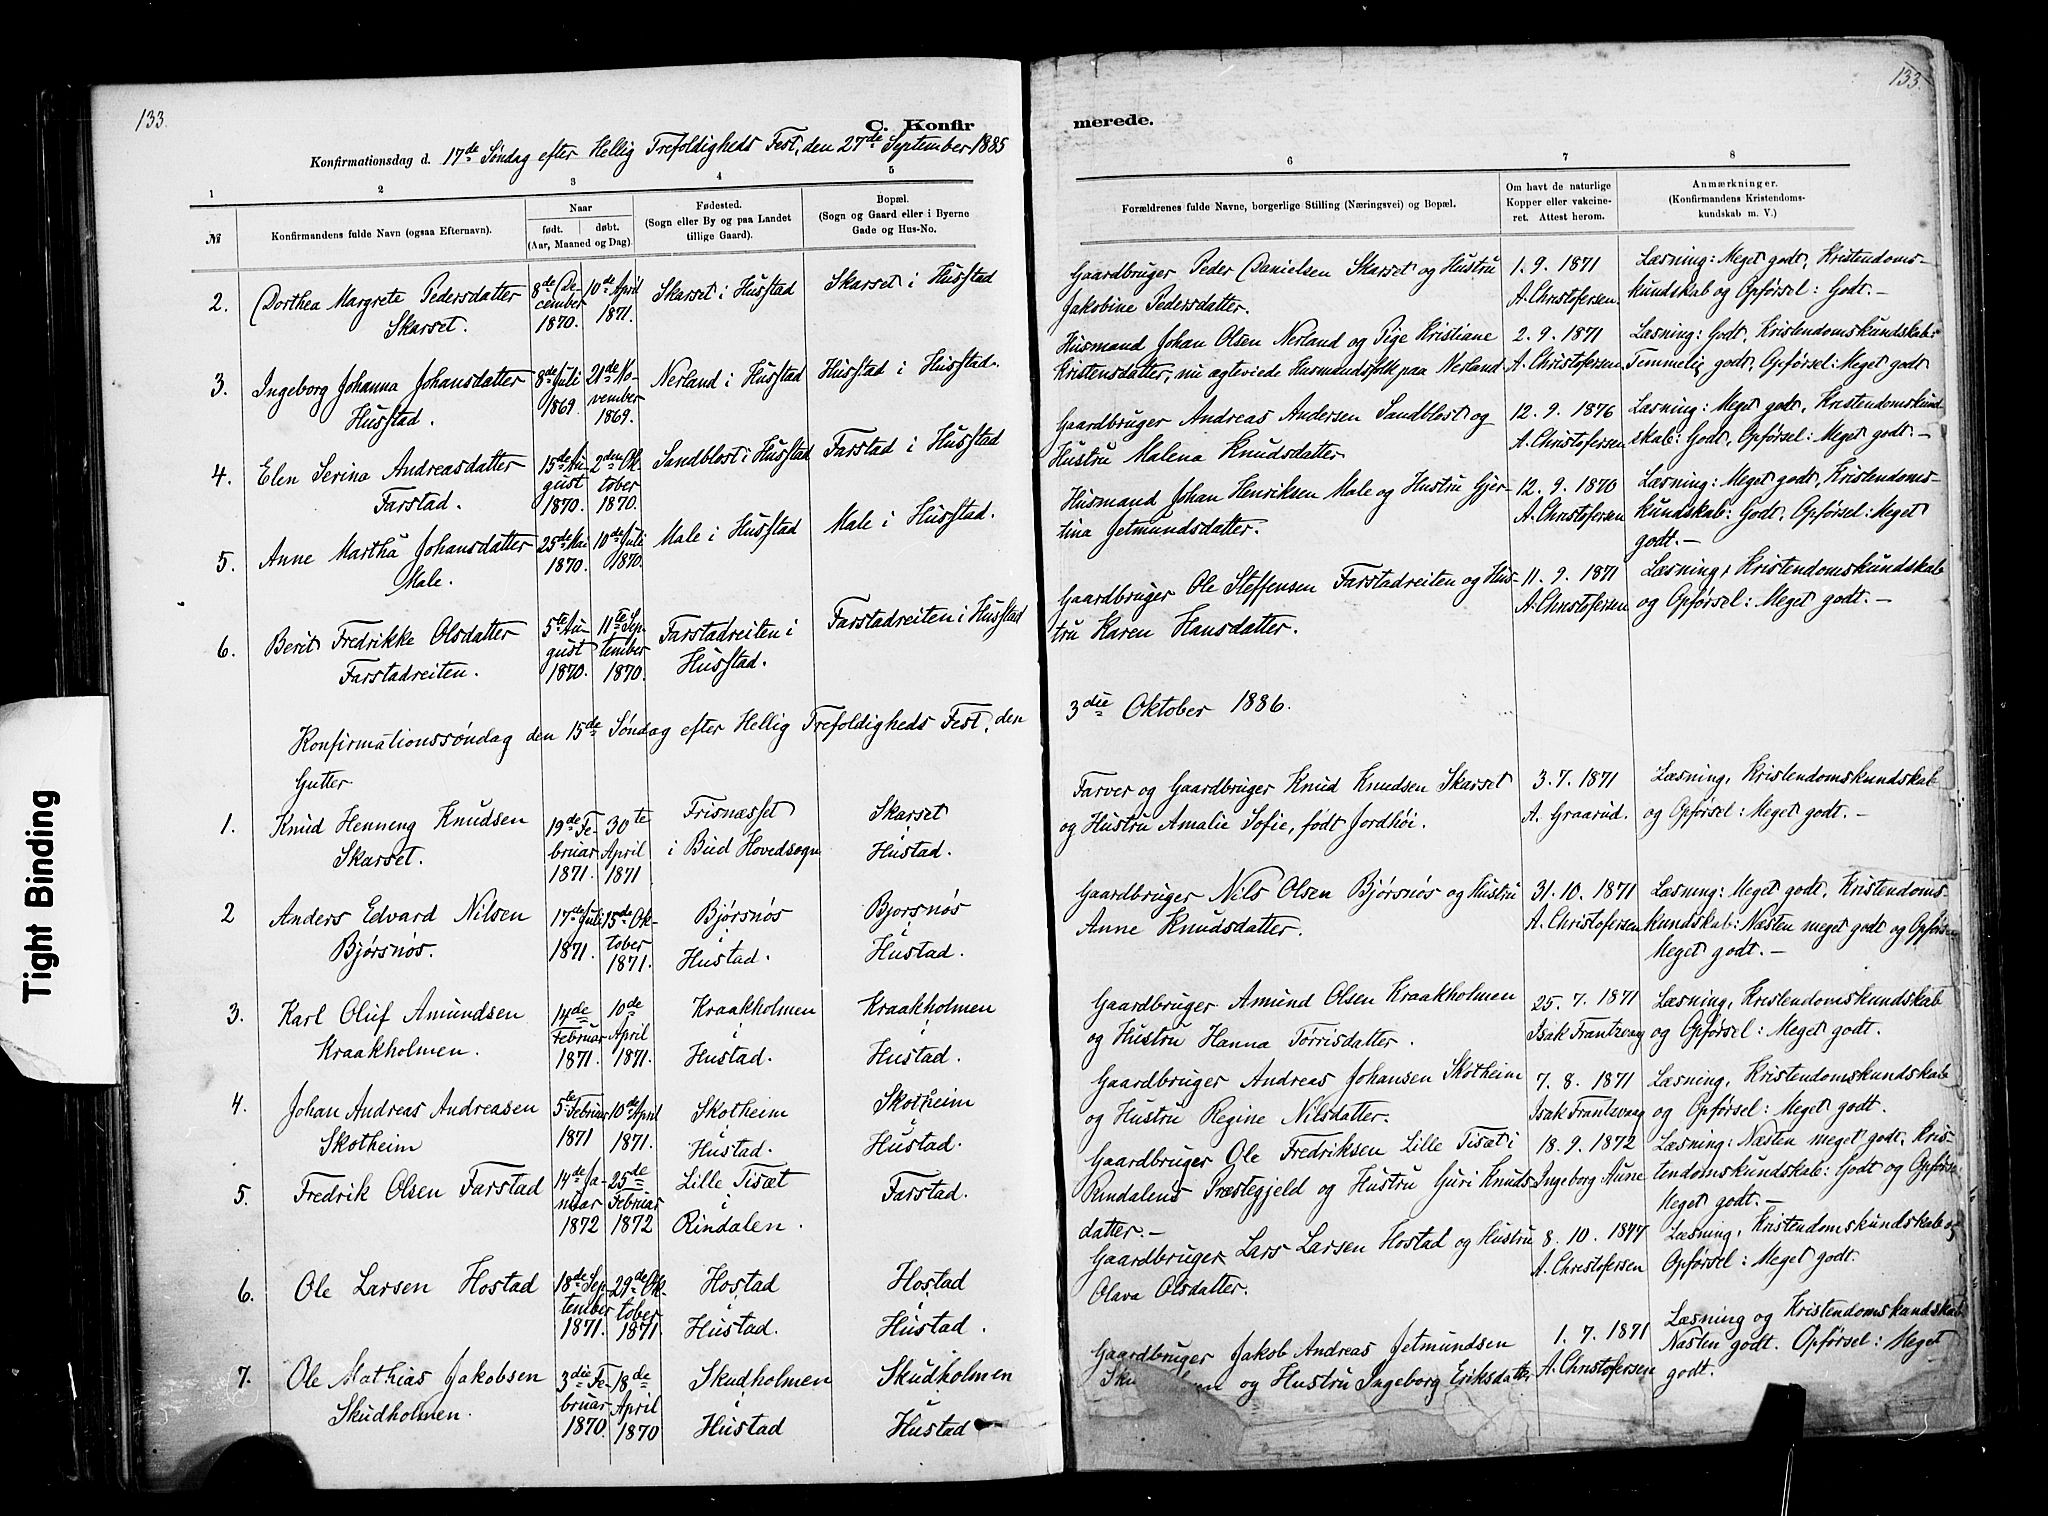 133.
133.
C. Konfirmerede.
Konfirmationsdag d. 17de Søndag efter Hellig Trefoldigheds Fest, den 27de September 1885
1 2 3 4 5 6 7 8
№
Konfirmandens fulde Navn (ogsaa Efternavn).
Naar
født. døbt.
(Aar, Maaned og Dag).
Fødested.
(Sogn eller By og paa Landet
tillige Gaard).
Bopæl.
(Sogn og Gaard eller i Byerne
Gade og Hus-No.
Forældrenes fulde Navne, borgerlige Stilling (Næringsvei) og Bopæl.
Om havt de naturlige
Kopper eller vakcine-
ret. Attest herom.
Anmærkninger.
(Konfirmandens Kristendoms-
kundskab m. V.)
2. Dorthea Margrete Pedersdatter
Skarset.
8de De-
cember
1870.
10de April
1871.
Skarset i Husstad
Skarset i Husstad
Gaardbruger Peder Danielsen Skarset og Hustru
Jakobine Pedersdatter.
1. 9. 1871
A. Christofersen.
Læsning: Meget godt, Kristendoms-
kundskab og Opførsel: Godt.-
3. Ingeborg Johanna Johansdatter
Husstad.
8de Juli
1869.
21de No-
vember
1869.
Nerland i Husstad
Husstad i Husstad.
Husmand Johan Olsen Nerland og Pige Kristiane
Kristensdatter, nu ægteviede Husmandsfolk paa Nerland
2. 9. 1871
A. Christofersen.
Læsning: Godt, Kristendomskundskab:
Temmelig godt, Opførsel: Meget godt
4. Elen Serina Andreasdatter
Farstad.
15de Au-
gust
1870.
2den Ok-
tober
1870.
Sandblost i Husstad
Farstad i Husstad
Gaardbruger Andreas Andersen Sandblost og
Hustru Malena Knudsdatter
12. 9. 1876
A. Christofersen
Læsning: Meget godt, Kristendomskund-
skab: Godt, Opførsel: Meget godt.-
5. Anne Martha Johansdatter
Male.
25de Mai
1870.
10de Juli
1870.
Male i Husstad
Male i Husstad.
Husmand Johan Henriksen Male og Hustru Gjer-
tina Jetmundsdatter.
12. 9. 1870
A. Christofersen
Læsning: Meget godt, Kristendoms-
kundskab: Godt, Opførsel: Meget
godt.-
6. Berit Fredrikke Olsdatter
Farstadreiten.
5te Au-
gust
1870.
11te Sep-
tember
1870.
Farstadreiten i
Husstad.
Farstadreiten i Husstad
Gaardbruger Ole Steffensen Farstadreiten og Hus-
tru Karen Hansdatter.
11. 9. 1871
A. Christofersen
Læsning, Kristendomskundskab
og Opførsel: Meget godt.-
Konfirmationssøndag den 15de Søndag efter Hellig Trefoldigheds Fest, den 3die Oktober 1886.
Gutter
1. Knud Henning Knudsen
Skarset.
19de Fe-
bruar
1871.
30te
April
1871
Frisnæsset
i Bud Hovedsogn
Skarset
i
Hustad.
Farver og Gaardbruger Knud Knudsen Skarset
og Hustru Amalie Sofie, født Jordhøi.
3. 7. 1871
A. Graarud.
Læsning, Kristendomskundskab
og Opførsel: Meget godt.-
2 Anders Edvard Nilsen
Bjørsnøs.
17de Juli
1871.
15de Ok-
tober
1871.
Bjørsnøs
i
Hustad.
Bjorsnøs
i
Hustad.
Gaardbruger Nils Olsen Bjørsnøs og Hustru
Anne Knudsdatter.
31. 10. 1871
A. Christofersen
Læsning: Meget godt, Kristendoms-
kundskab: Næsten meget godt og Opførsel
Meget godt.-
3. Karl Oluf Amundsen
Kraakholmen.
14de
Februar
1871.
10de
April
1871.
Kraakholmen
i
Hustad.
Kraakholmen
i
Hustad.
Gaardbruger Amund Olsen Kraakholmen
og Hustru Hanna Tørrisdatter.
25. 7. 1871
Isak Frantzvaag
Læsning, Kristendomskundskab
og Opførsel: Meget godt.
4. Johan Andreas Andreasen
Skotheim
5te Februar
1871
10de April
1871.
Skotheim
i
Hustad.
Skotheim
i
Hustad.
Gaardbruger Andreas Johansen Skotheim
og Hustru Regine Nilsdatter.
7. 8. 1871
Isak Frantzvaag
Læsning, Kristendomskundskab
og Opførsel: Meget godt.
5. Fredrik Olsen Farstad
14de Ja-
nuar
1872
25de
Februar
1872
Lille Tisæt
i
Rindalen.
Farstad.
Gaardbruger Ole Fredriksen Lille Tisæt i
Rindalens Præstegjeld og Hustru Guri Knuds-
datter.-
18. 9. 1872
Ingeborg Aune
Læsning: Næsten meget godt, Kris-
tendomskundskab: Godt og Opførsel
Meget godt.-
6. Ole Larsen Hostad
18de Sep-
tember
1871.
29de Ok-
tober
1871.
Hostad
i
Hustad.
Hostad
i
Hustad.
Gaardbruger Lars Larsen Hostad og Hustru
Olava Olsdatter.
8. 10. 1877
A. Christofersen
Læsning, Kristendomskundskab og
Opførsel: Meget godt.
7. Ole Mathias Jakobsen
Skudholmen.
3die Fe-
bruar
1870.
18de
April
1870
Skudholmen
i
Hustad
Skudholmen
i
Hustad
Gaardbruger Jakob Andreas Jetmundsen
og Hustru Ingeborg Eriksdatter
1. 7. 1871
A. Christofersen
Læsning og Kristendomskundskab
Næsten godt. Opførsel: Meget
godt.
Tight Binding